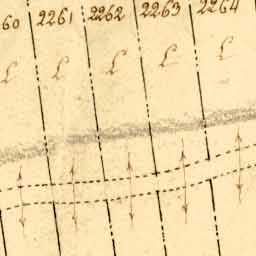 60 2261 2262 2263 2264
L L L L L